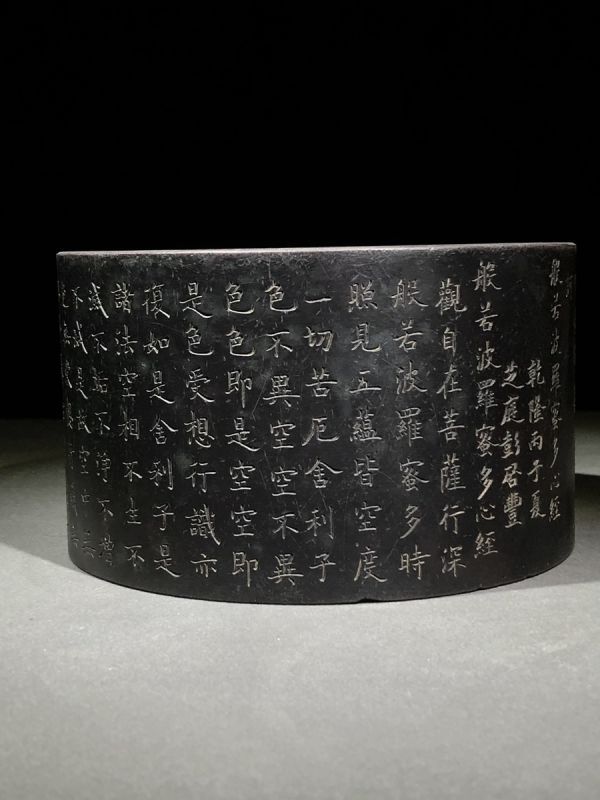 般若波羅蜜多心經
乾隆丙子夏
芝庭彭启豐
般若波羅蜜多心經
觀自在菩薩行深
般若波羅蜜多時
照見五蘊皆空度
一切苦厄舍利子
色不異空空不異
色色即是空空即
是色受想行識亦
復如是舍利子是
諸法空相不生不
滅不垢不淨不增
不減是故空中無